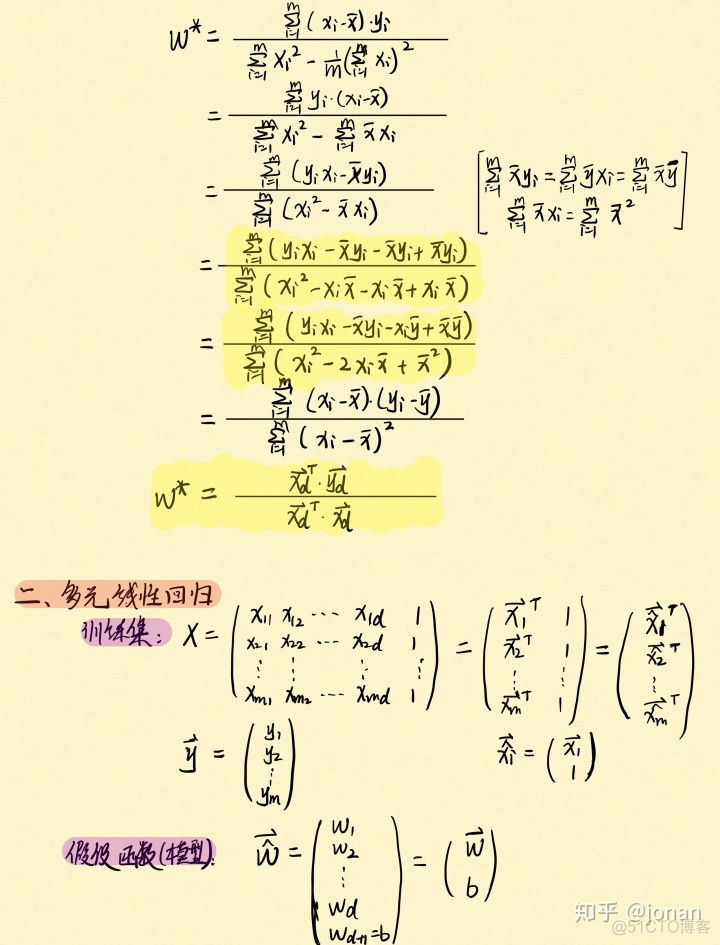 w* = \frac{\sum_{i=1}^{m} (x_i - \bar{x}) \cdot y_i}{\sum_{i=1}^{m} x_i^2 - \frac{1}{m} (\sum_{i=1}^{m} x_i)^2}
= \frac{\sum_{i=1}^{m} y_i \cdot (x_i - \bar{x})}{\sum_{i=1}^{m} x_i^2 - \sum_{i=1}^{m} \bar{x} x_i}
= \frac{\sum_{i=1}^{m} (y_i x_i - \bar{x} y_i)}{\sum_{i=1}^{m} (x_i^2 - \bar{x} x_i)}
[ \sum_{i=1}^{m} \bar{x} y_i = \sum_{i=1}^{m} \bar{y} x_i = \sum_{i=1}^{m} \bar{x} \bar{y}
\sum_{i=1}^{m} \bar{x} x_i = \sum_{i=1}^{m} \bar{x}^2 ]
= \frac{\sum_{i=1}^{m} (y_i x_i - \bar{x} y_i - \bar{x} y_i + \bar{x} y_i)}{\sum_{i=1}^{m} (x_i^2 - x_i \bar{x} - x_i \bar{x} + x_i \bar{x})}
= \frac{\sum_{i=1}^{m} (y_i x_i - \bar{x} y_i - x_i \bar{y} + \bar{x} \bar{y})}{\sum_{i=1}^{m} (x_i^2 - 2 x_i \bar{x} + \bar{x}^2)}
= \frac{\sum_{i=1}^{m} (x_i - \bar{x}) \cdot (y_i - \bar{y})}{\sum_{i=1}^{m} (x_i - \bar{x})^2}
w* = \frac{\vec{x_d}^T \cdot \vec{y_d}}{\vec{x_d}^T \cdot \vec{x_d}}
二、多元线性回归
训练集: X = \begin{pmatrix} x_{11} & x_{12} & \cdots & x_{1d} & 1 \\ x_{21} & x_{22} & \cdots & x_{2d} & 1 \\ \vdots & \vdots & & \vdots & \vdots \\ x_{m1} & x_{m2} & \cdots & x_{md} & 1 \end{pmatrix} = \begin{pmatrix} \vec{x_1}^T & 1 \\ \vec{x_2}^T & 1 \\ \vdots & \vdots \\ \vec{x_m}^T & 1 \end{pmatrix} = \begin{pmatrix} \hat{\vec{x_1}}^T \\ \hat{\vec{x_2}}^T \\ \vdots \\ \hat{\vec{x_m}}^T \end{pmatrix}
\vec{y} = \begin{pmatrix} y_1 \\ y_2 \\ \vdots \\ y_m \end{pmatrix} \hat{\vec{x_i}} = \begin{pmatrix} \vec{x_i} \\ 1 \end{pmatrix}
假设函数(模型): \hat{\vec{w}} = \begin{pmatrix} w_1 \\ w_2 \\ \vdots \\ w_d \\ w_{d+1} = b \end{pmatrix} = \begin{pmatrix} \vec{w} \\ b \end{pmatrix}
知乎 @jonan
@51CTO博客